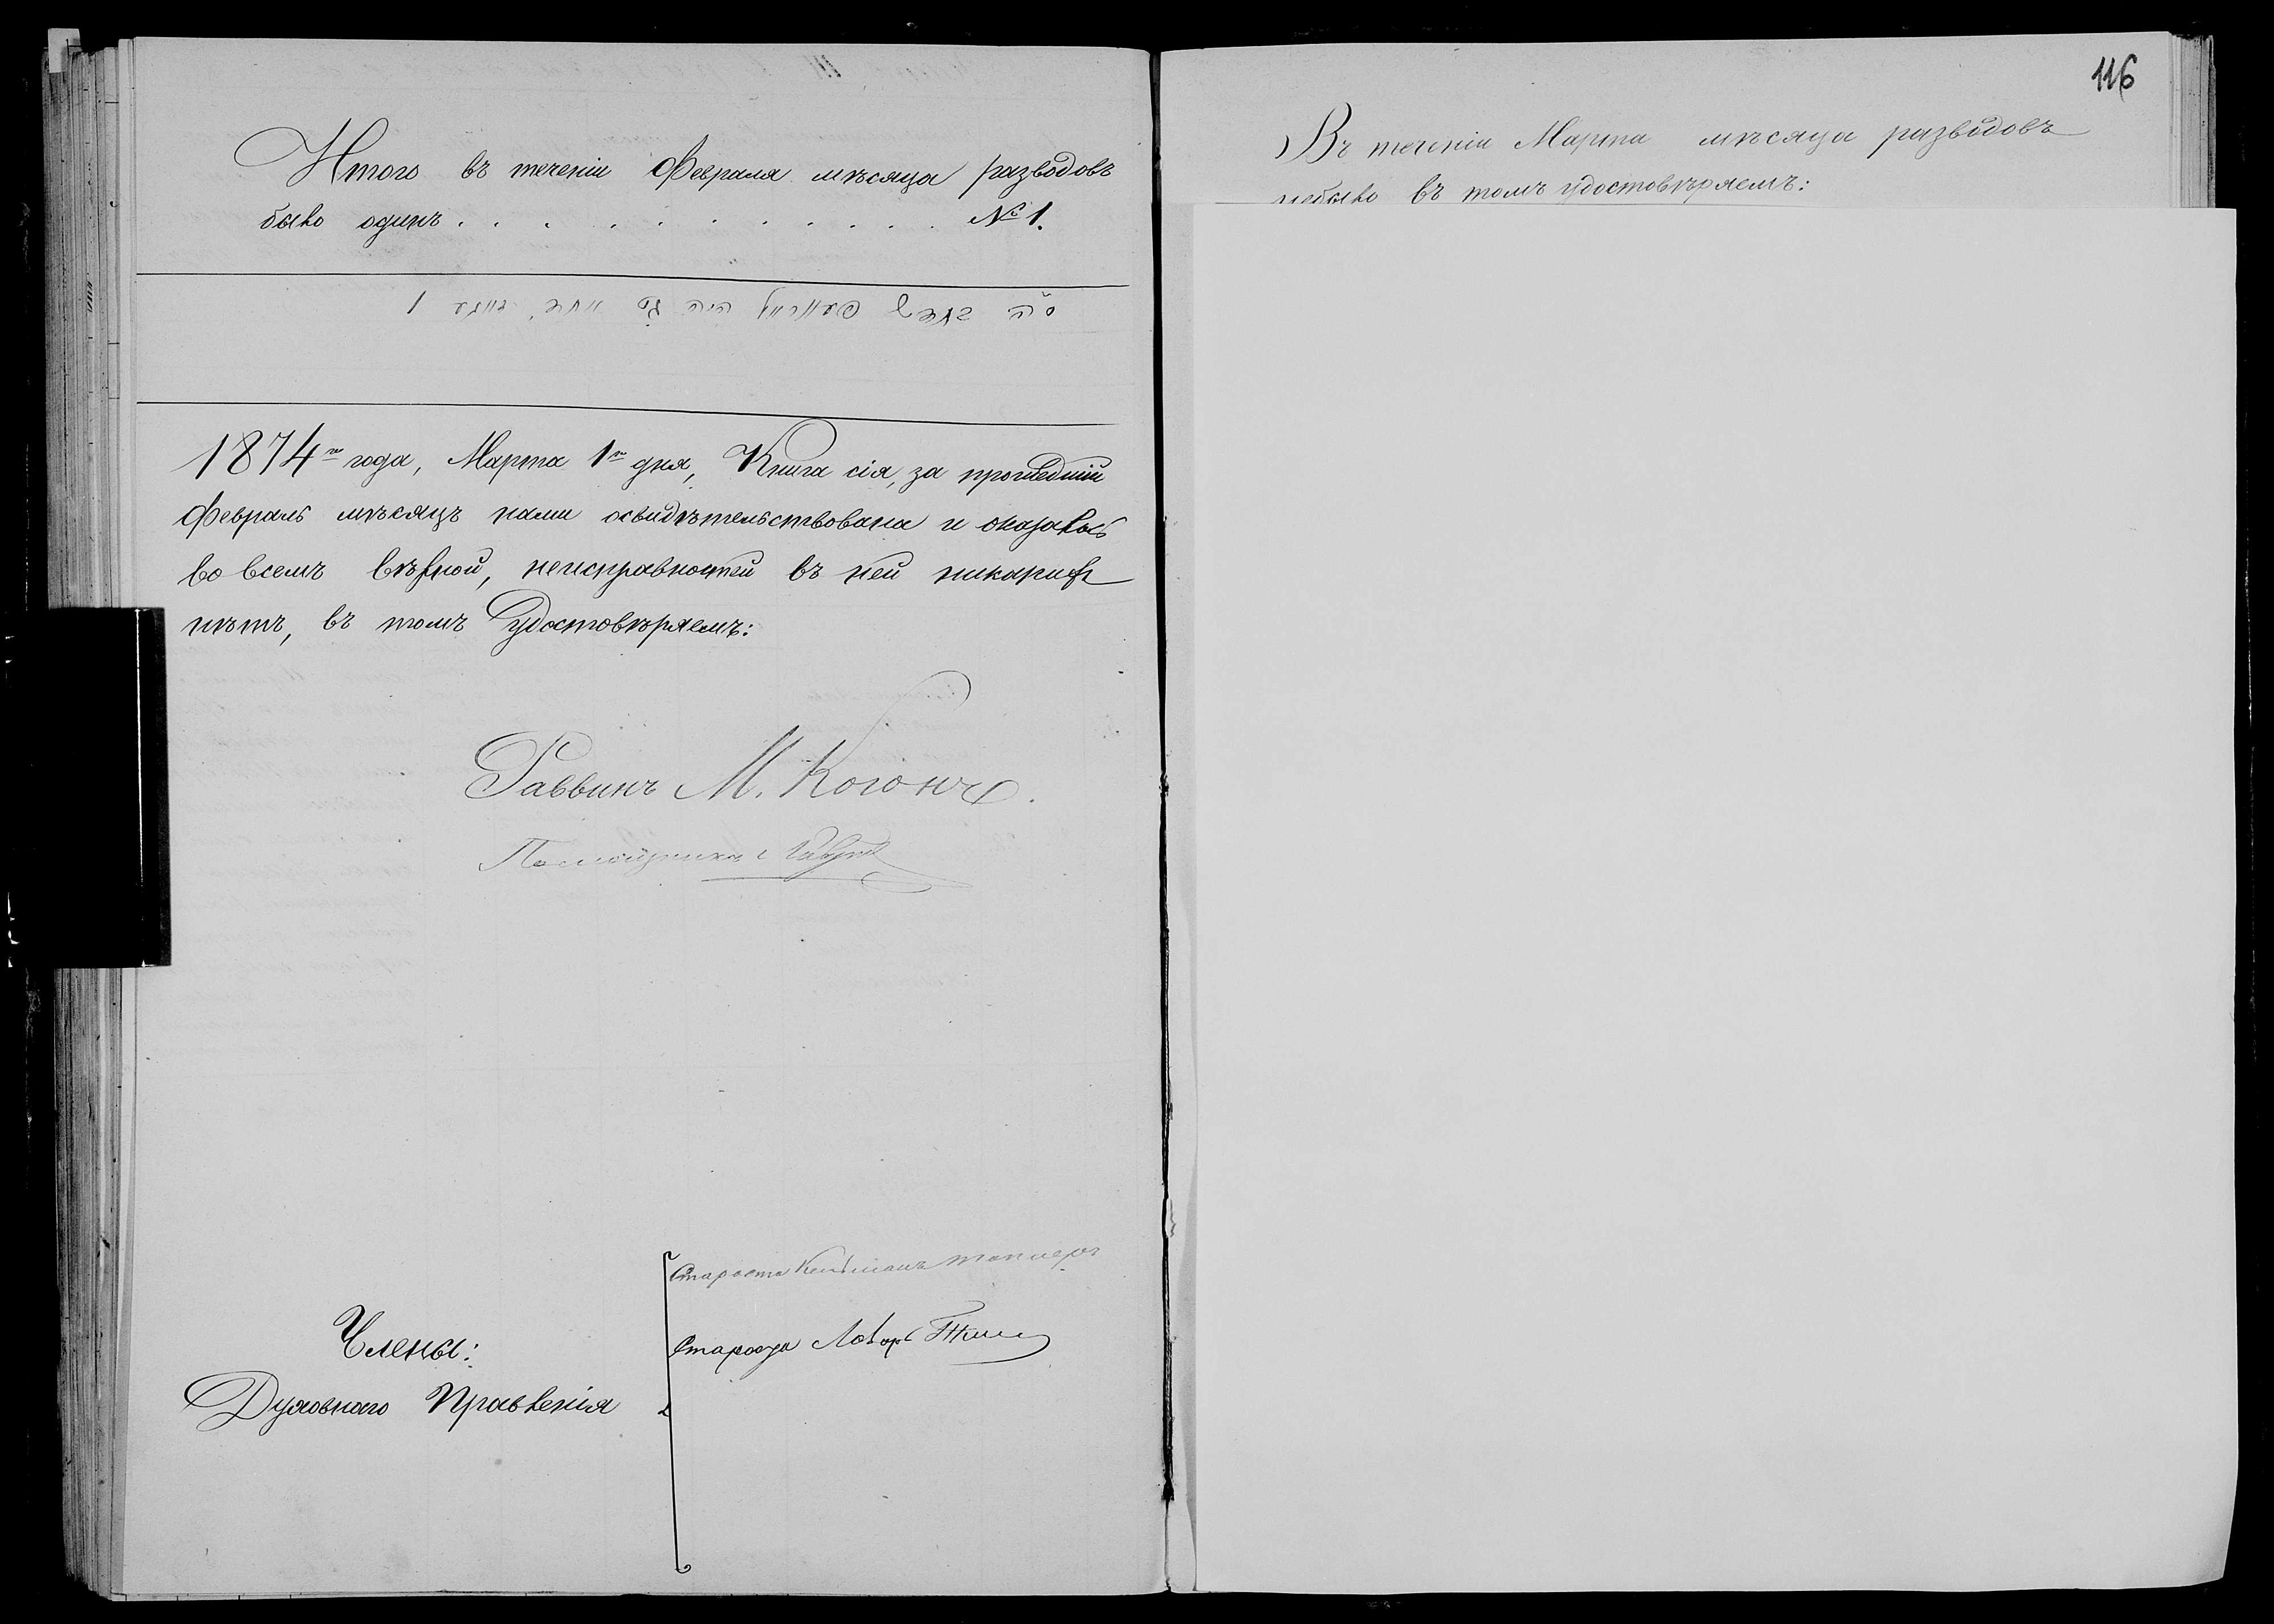 Итого въ теченіи Февраля мѣсяца разводовъ
было одинъ . . . . . . . . . . . № 1.
1
1874го года, Марта 1го дня, Книга сія, за прошедшій
Февраль мѣсяцъ нами освидѣтельствована и оказалась
во всемъ вѣрной, неисправностей въ ней никакихъ
нѣтъ, въ томъ удостовѣряемъ:
Раввинъ М. Когонъ.
Помощникъ
Староста
Члены:
Староста
Духовнаго Правленія
116
Въ теченіи Марта мѣсяца разводовъ
небыло въ томъ удостовѣряемъ: